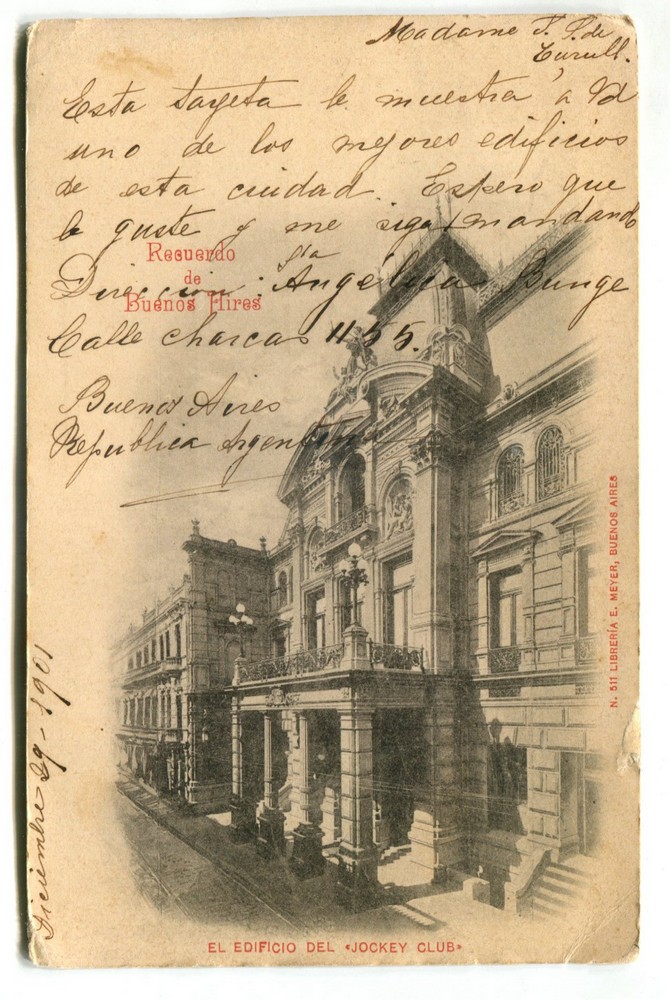 Madame T. T. de
Turull.
Esta targeta le muestra a Vd
uno de los mejores edificios
de esta ciudad. Espero que
le guste y me siga mandando
Recuerdo
de
Buenos Aires
Dirección: Sta Angélica Bunge
Calle charcas 1155.
Buenos Aires
Republica Argentina
Diciembre 29-1901
N. 511 LIBRERÍA E. MEYER, BUENOS AIRES
EL EDIFICIO DEL «JOCKEY CLUB»